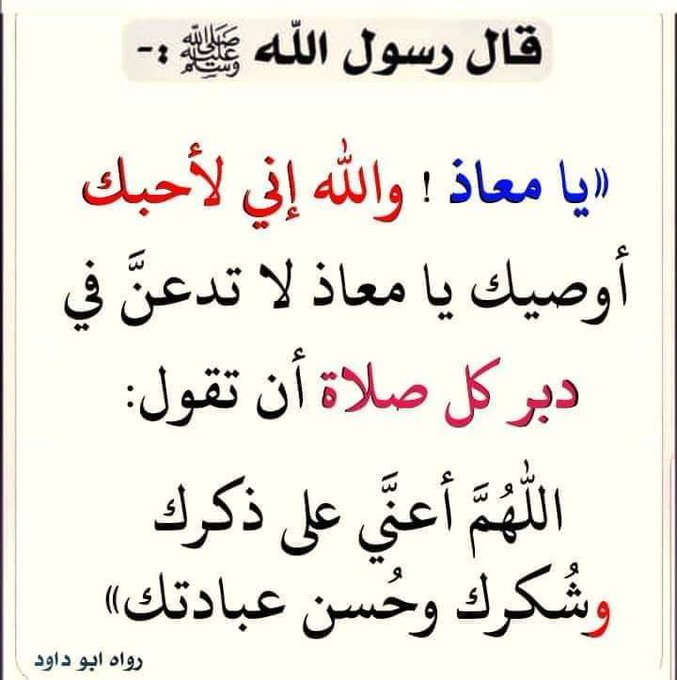 قال رسول الله ﷺ :-
«يا معاذ ! والله إني لأحبك
أوصيك يا معاذ لا تدعنَّ في
دبر كل صلاة أن تقول:
اللهُمَّ أعنَّي على ذكرك
وشُكرك وحُسن عبادتك»
رواه ابو داود